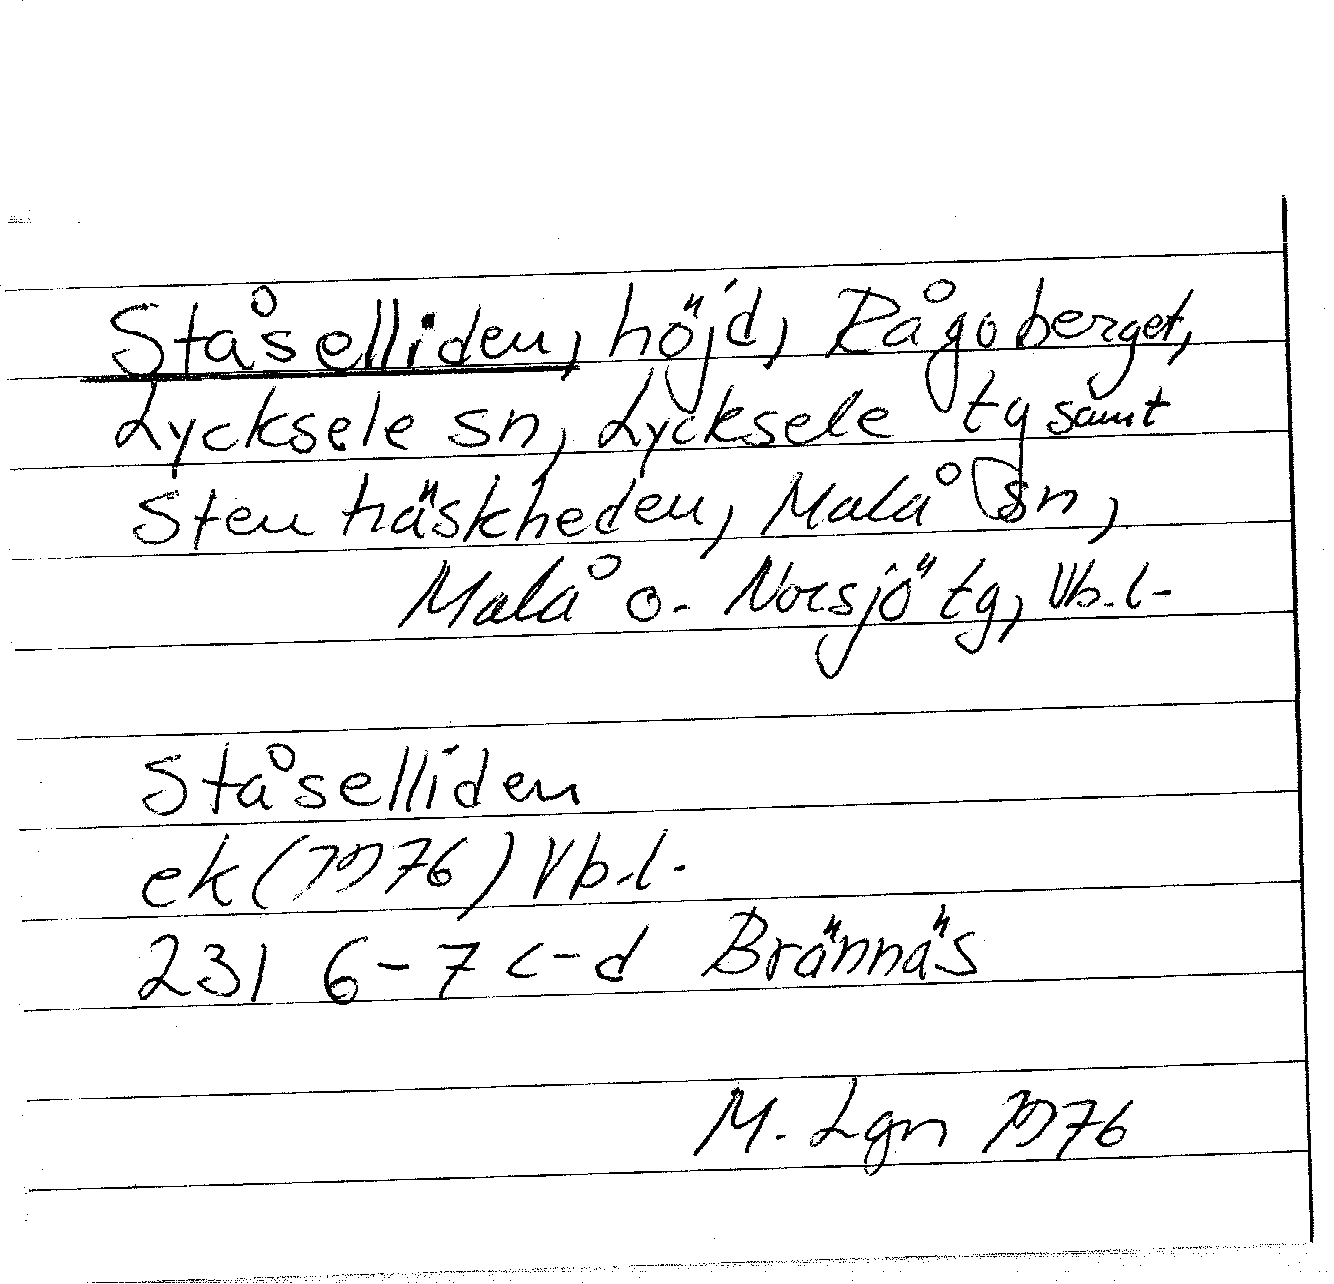 Ståselliden, höjd, Rågoberget,
Lycksele sn, Lycksele tg samt
Stenträskheden, Malå sn,
Malå o. Norsjö tg, Vb.l.
Ståselliden
ek (1976) Vb.l.
231 6-7 c-d Brännäs
M. Lgn 1976